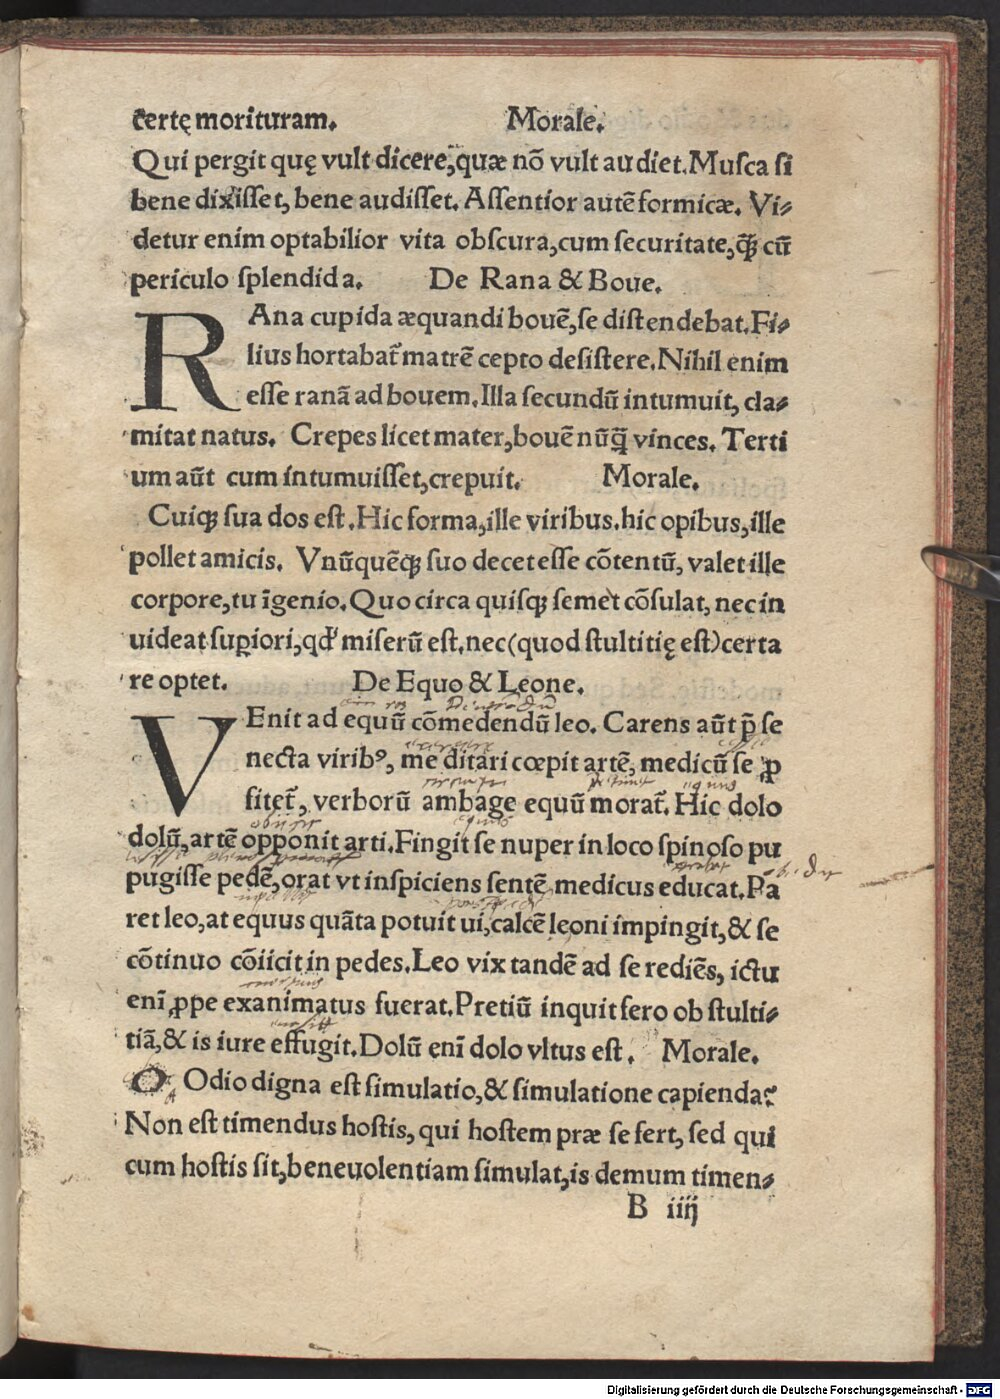 certę morituram. Morale.
Qui pergit quę vult dicere, quæ nõ vult audiet. Musca si
bene dixisset, bene audisset. Assentior autẽ formicæ. Vi⸗
detur enim optabilior vita obscura, cum securitate, q̃ꝫ cũ
periculo splendida. De Rana & Boue.
RAna cupida æquandi bouẽ, se distendebat. Fi⸗
lius hortabat᷑ matrẽ cepto desistere. Nihil enim
esse ranã ad bouem. Illa secundũ intumuit, cla⸗
mitat natus. Crepes licet mater, bouẽ nũq̃ vinces. Terti
um aũt cum intumuisset, crepuit. Morale.
Cuiqꝫ sua dos est. Hic forma, ille viribus. hic opibus, ille
pollet amicis. Vnũquẽqꝫ suo decet esse cõtentũ, valet ille
corpore, tu ĩgenio. Quo circa quisqꝫ semet cõsulat, nec in
uideat suꝑiori, qđ miserũ est. nec (quod stultitię est) certa
re optet. De Equo & Leone.
VEnit ad equũ cõmedendũ leo. Carens aũt p̃ se
necta viribꝰ, me ditari cœpit artẽ, medicũ se ꝓ
fitet᷑, verborũ ambage equũ morat᷑. Hic dolo
dolũ, artẽ opponit arti. Fingit se nuper in loco spinoso pu
pugisse pedẽ, orat vt inspiciens sentẽ medicus educat. Pa
ret leo, at equus quãta potuit ui, calcẽ leoni impingit, & se
cõtinuo cõiicit in pedes. Leo vix tandẽ ad se rediẽs, ictu
enĩ ꝓpe exanimatus fuerat. Pretiũ inquit fero ob stulti⸗
tiã, & is iure effugit. Dolũ enĩ dolo vltus est. Morale.
O Odio digna est simulatio, & simulatione capienda:
Non est timendus hostis, qui hostem præ se fert, sed qui
cum hostis sit, beneuolentiam simulat, is demum timen⸗
B iiij
Digitalisierung gefördert durch die Deutsche Forschungsgemeinschaft - DFG